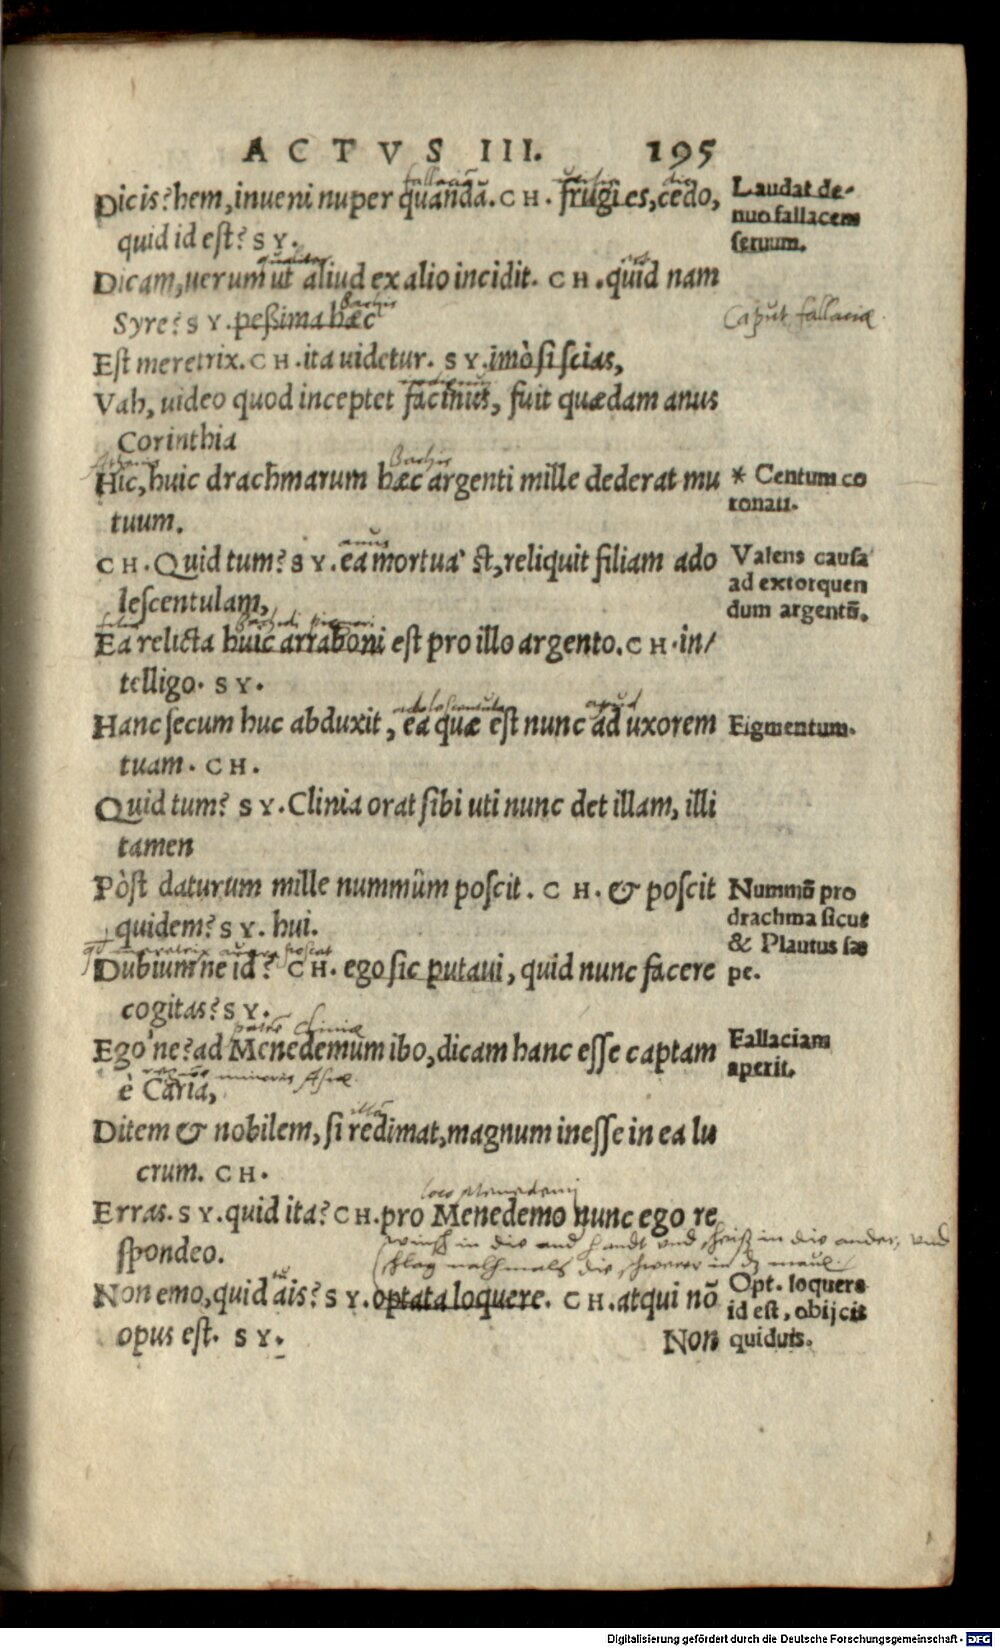 ACTVS III. 195
Dicis? hem, inueni nuper quandã. CH. frugi es, cedo,
quid id est? SY.
Laudat de-
nuo fallacem
seruum.
Dicam, uerum ut aliud ex alio incidit. CH. quid nam
Syre? SY. peßima hæc
Bachis
Caput fallaciæ.
Est meretrix. CH. ita uidetur. SY. imò si scias,
Vah, uideo quod inceptet facinus, fuit quædam anus
Corinthia
Bachis
Hic, huic drachmarum hæc argenti mille dederat mu
tuum.
* Centum co
ronati.
anus
CH. Quid tum? SY. ea mortua' st, reliquit filiam ado
lescentulam,
Valens causa
ad extorquen
dum argentũ.
filia
Ea relicta huic arraboni est pro illo argento. CH. in/
telligo. SY.
adolescentula apud
Hanc secum huc abduxit, ea quæ est nunc ad uxorem
tuam. CH.
Figmentum.
Quid tum? SY. Clinia orat sibi uti nunc det illam, illi
tamen
Pòst daturum mille nummûm poscit. CH. & poscit
quidem? SY. hui.
Nummõ pro
drachma sicut
& Plautus sæ
pe.
Dubium'ne id? CH. ego sic putaui, quid nunc facere
cogitas? SY.
patrē Cliniæ
Ego'ne? ad Menedemum ibo, dicam hanc esse captam
è Caria,
Fallaciam
aperit.
minoris Asiæ.
illã
Ditem & nobilem, si redimat, magnum inesse in ea lu
crum. CH.
loco Menedemi
Erras. SY. quid ita? CH. pro Menedemo nunc ego re
spondeo.
winsch in die and handt und scheiß in die ander, und
schlag nachmals die schwerer in dz maul.
tu
Non emo, quid ais? SY. optata loquere. CH. atqui nõ
opus est. SY.
Opt. loquere
id est, obijcis
quiduis.
Non
Digitalisierung gefördert durch die Deutsche Forschungsgemeinschaft - DFG